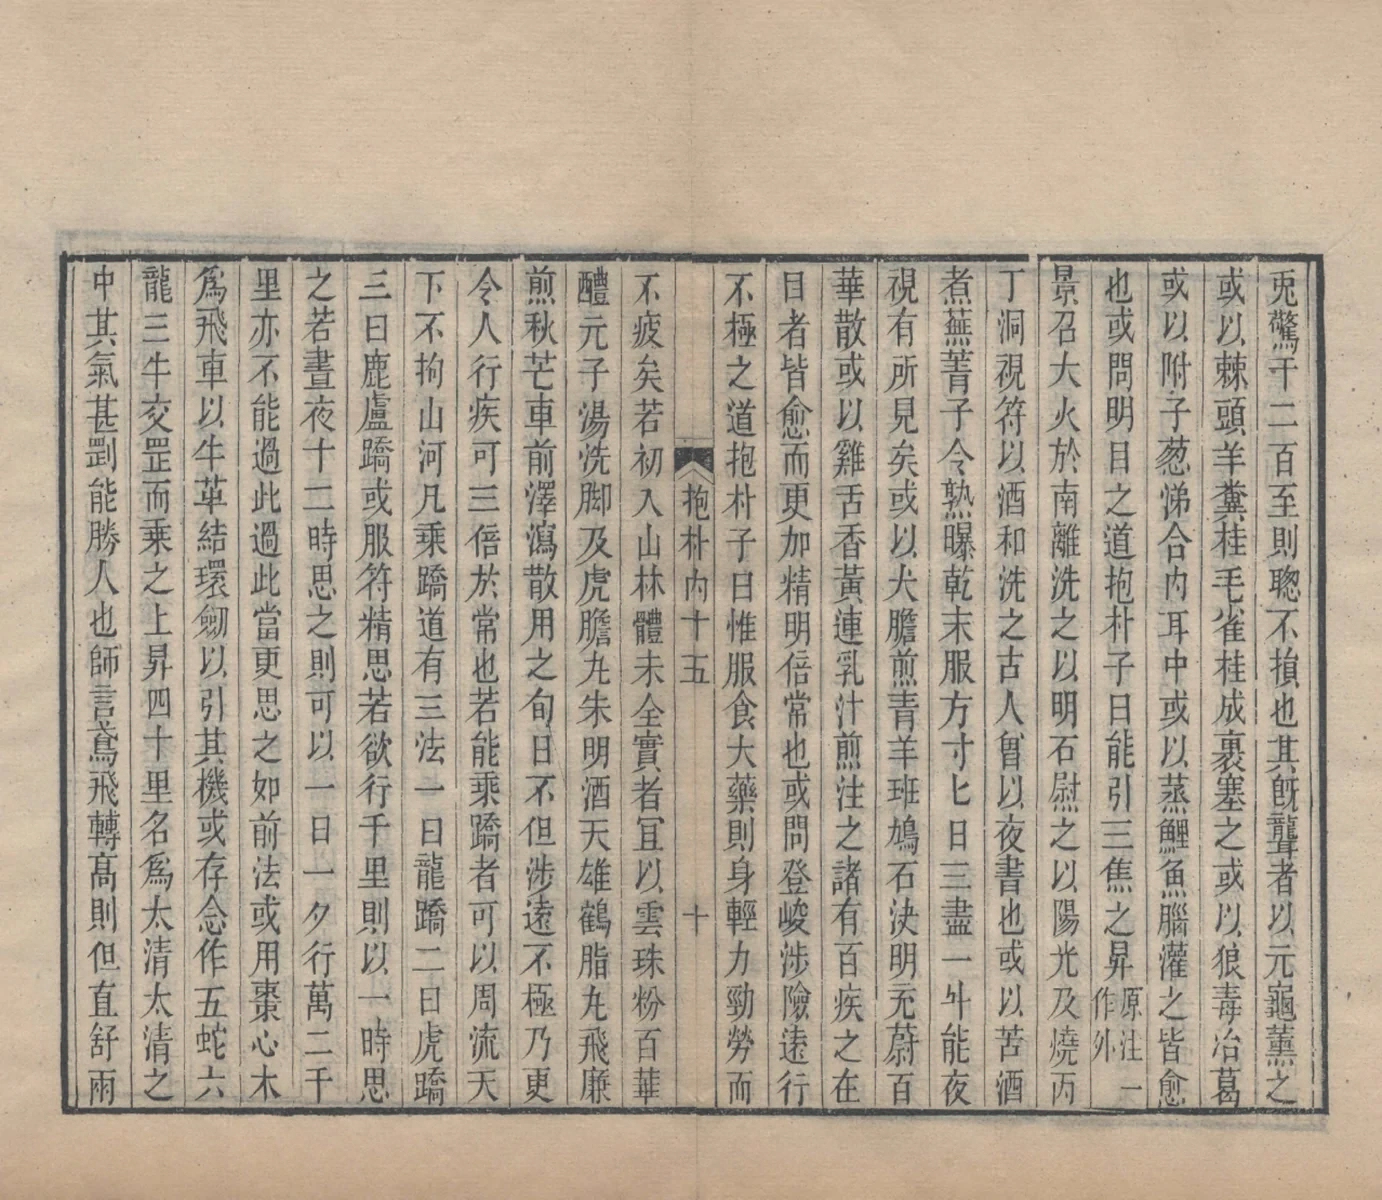 兎驚千二百至則聰不損也其旣聾者以元龜薰之
或以棘頭羊糞桂毛雀桂成裹塞之或以狼毒冶葛
或以附子葱涕合內耳中或以蒸鯉魚腦灌之皆愈
也或問明目之道抱朴子曰能引三焦之昇原注一作外
景召大火於南離洗之以明石慰之以陽光及燒丙
丁洞視符以酒和洗之古人曾以夜書也或以苦酒
煮蕪菁子令熟曝乾末服方寸匕日三盡一斗能夜
視有所見矣或以犬膽煎青羊班鳩石決明充蔚百
華散或以雞舌香黃連乳汁煎注之諸有百疾之在
目者皆愈而更加精明倍常也或問登峻涉險遠行
不極之道抱朴子曰惟服食大藥則身輕力勁勞而
抱朴內十五 十
不疲矣若初入山林體未全實者宜以雲珠粉百華
醴元子湯洗脚及虎膽丸朱明酒天雄鶴脂丸飛廉
煎秋芒車前澤瀉散用之旬日不但涉遠不極乃更
令人行疾可三倍於常也若能乘蹻者可以周流天
下不拘山河凡乘蹻道有三法一曰龍蹻二曰虎蹻
三曰鹿盧蹻或服符精思若欲行千里則以一時思
之若晝夜十二時思之則可以一日一夕行萬二千
里亦不能過此過此當更思之如前法或用棗心木
爲飛車以牛革結環劒以引其機或存念作五蛇六
龍三牛交罡而乘之上昇四十里名爲太清太清之
中其氣甚剛能勝人也師言鳶飛轉高則但直舒兩